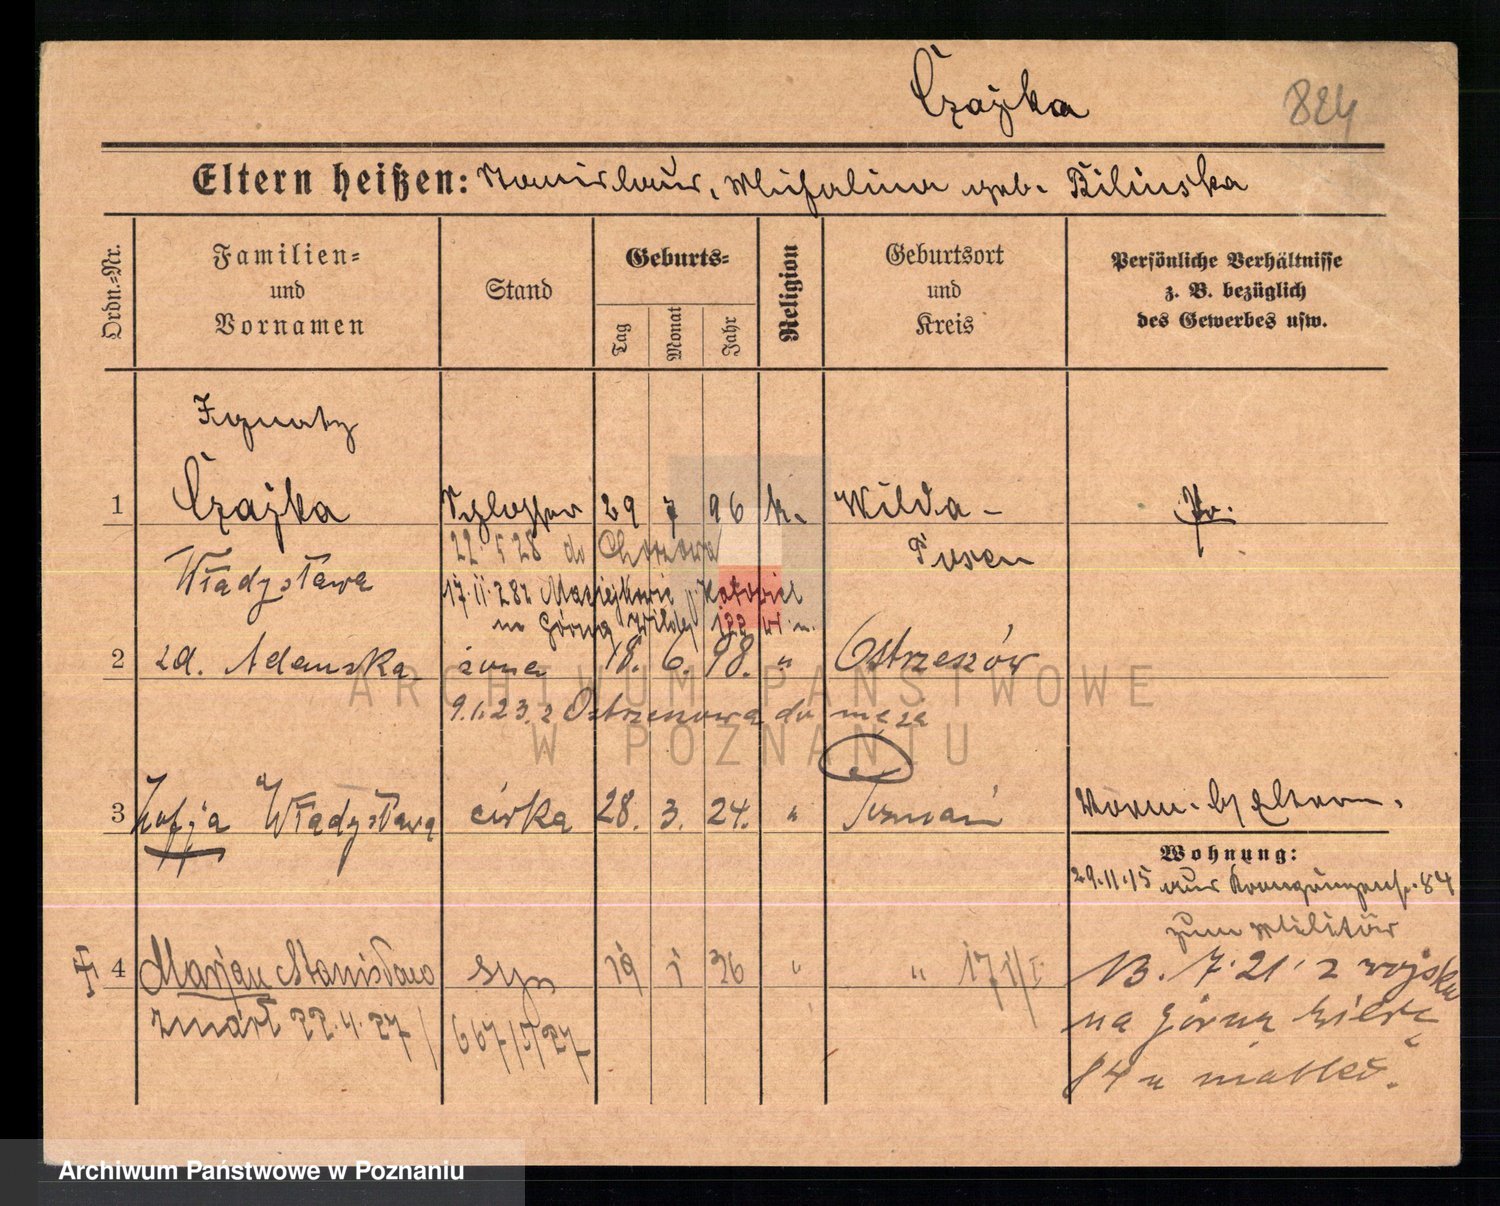 Czajka 824
Eltern heißen: Stanislaus, Michalina geb. Bilinska
Ordn.=Nr.
Familien=
und
Vornamen
Stand
Geburts=
Tag
Monat
Jahr
Religion
Geburtsort
und
Kreis
Persönliche Verhältnisse
z. B. bezüglich
des Gewerbes usw.
Ignatz
1 Czajka Schlosser 29 7 96 k. Wilda - Pr.
Posen
22.5.28 do Chorzowa
Władysława
17.11.28
na Górną Wildę 122
2 zd. Adamska żona 18. 6. 98. " Ostrzeszów
9.1.23. z Ostrzeszowa do męża
3 Zofja Władysława córka 28. 3. 24. " Poznań
Vorm. b/ Eltern.
Wohnung:
29.11.15 aus Kronprinzenstr. 84
zum Militär
4 Marjan Stanisław syn 19 1 26 " " 171/I
zmarł 22.4.27 / 667/5/27
13.7.21 z wojska
na Górną Wildę
84 u matki.
ARCHIWUM PAŃSTWOWE
W POZNANIU
Archiwum Państwowe w Poznaniu